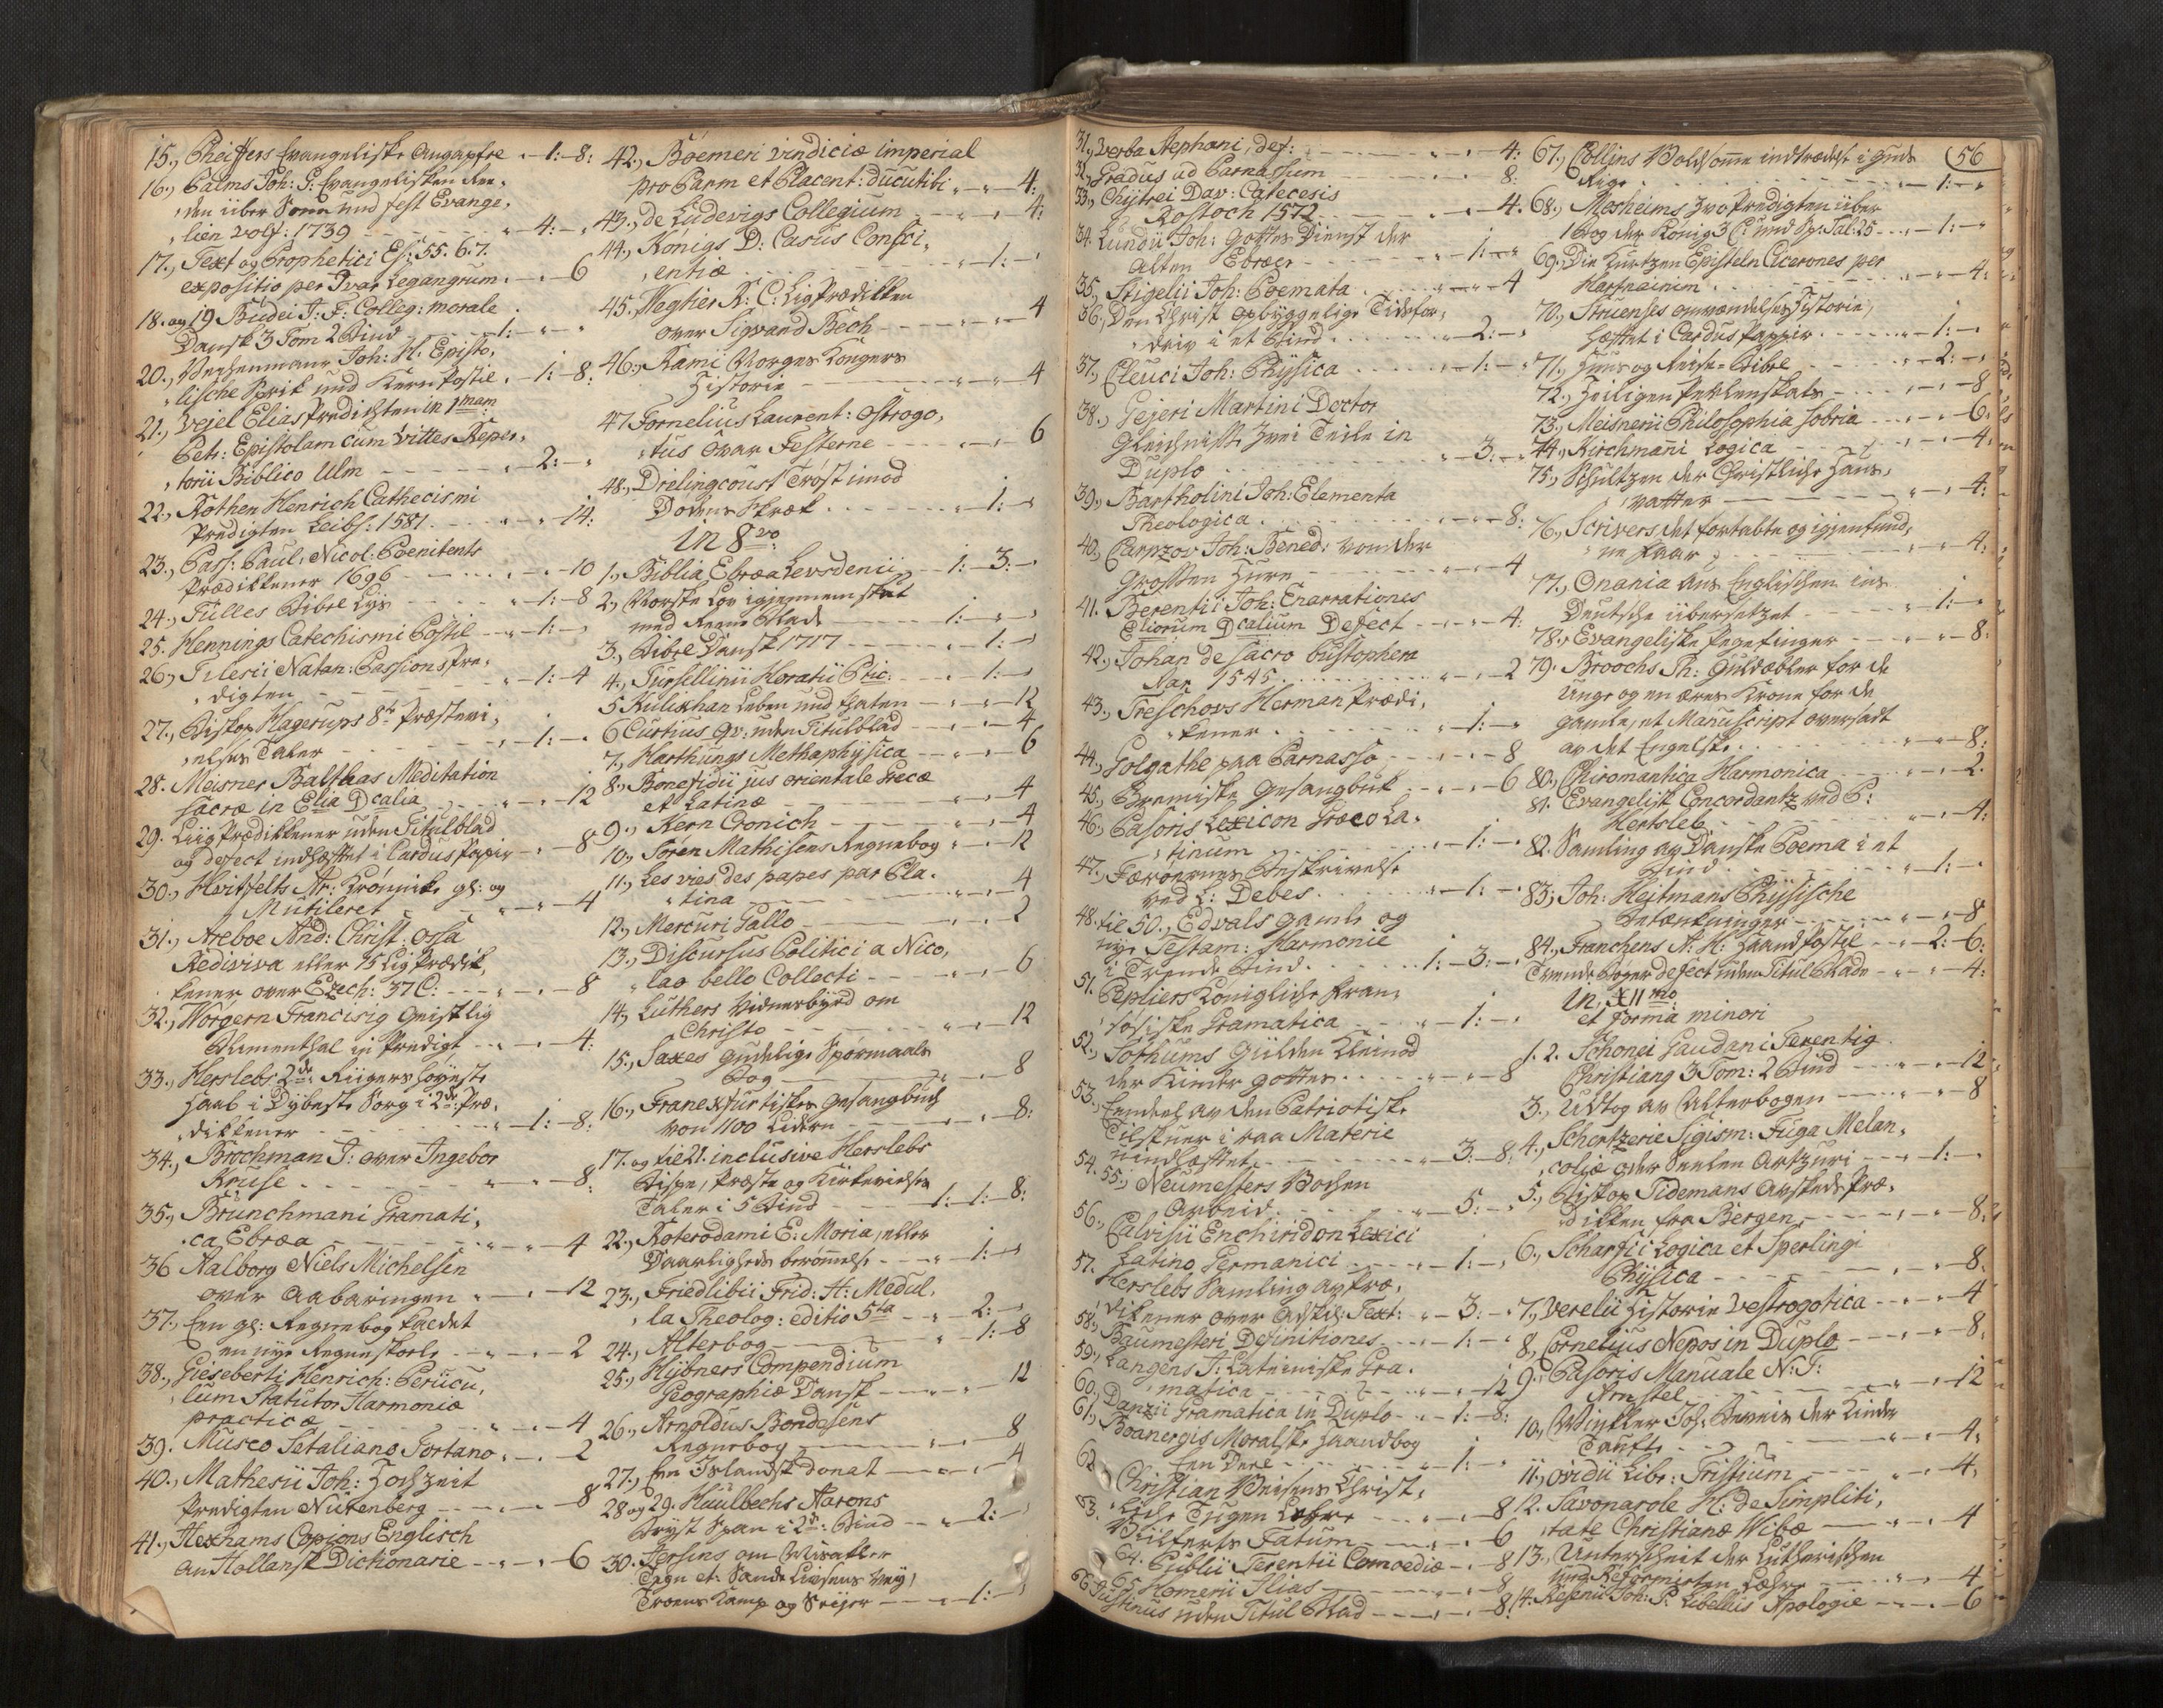 15., Pheiffers Evangeliske Augapfre „ - 1: - 8:
16., Palms Joh: P: Evangelisken
den über Sonn und fest Evange„
„lien Volf: 1739 - - - „ - 4: - „
17., Text og Prophetici Es: 55. 6. 7.
expositio per Ivar Legangrum „ - „ - 6
18. og 19 Büdei I: F: Colleg: morale
Dansk 3 Tom 2 Bind - - - 1: - „ - „
20., Joh: H. Episto„
„lische und Kern Postil „ - 1: - 8:
21., Vejel Elias Predichten in 1mam
Petr: Epistolam cum Vittes Reper„
„torii Biblico Ulm - - - „ - 2: - „
22., Kothen Henrich Cathecismi
Predigten Leibs: 1581 - - - „ - „ - 14:
23., Pass: Paul: Nicol: Poenitents
Prædikkener 1696 - - - „ - „ - 10
24., Tülles Bibel Lÿs - - - „ - 1: - 8
25. Hennings Catechismi Postil - - „ - 1: - „
26., Tilerii Natan: Passions Pre„
„digten - - - „ - 1: - 4
27., Biskop Hagerups 8te Præstevi„
„elses Taler - - - „ - 1: - „
28. Meisner Balthas Meditation
sacræ in Elia Dcalia - - - „ - „ - 12
29. Liig Prædikkener uden Titulblad
og defect indhæftet i Cardus Papir „ - „ - 8
30., Hvitfelts Ar: Krønnike gl: og
Mutileret - - - „ - „ - 4
31., Areboe And: Christ: Ossa
Rediviva eller 15 Lig Prædik„
kener over Ezech: 37 C: - - - „ - „ - 8
32., Worgern Francisig Geistlig
Blumenthal in Predigt - - - „ - „ - 4:
33., Herslebs 2de Riigers høyeste
Haab i Dÿbeste Sorg i 2de Præ„
„dikkener - - - „ - 1: - 8:
34., Brochman I: over Ingebor
Kruse - - - „ - „ - 8:
35., Brunchmani Gramati„
„ca Ebræa - - - „ - „ - 4
36 Aalborg Niels Michelsen
over Aabaringen „ - „ - 12
37., Een gl: Regnebog kaldet
en nye Regneskole - - - „ - „ - 2
38., Gieseberti Henrich: Perucu„
„lum Statutor Harmoniæ
practicæ - - - „ - „ - 4
39. Museo Setaliano Tortano „ - „ - 2
40., Matherii Joh: Hochzeit
Predigten Nürenberg - - - „ - „ - 8
41., Hexhams Copions Englisch
an Hollansk Dictionarie - - „ - „ - 6
42., Böemeri vindiciæ imperial
pro Parm et Placent: ducutibi „ - „ - 4:
43., de Ludevigs Collegium - - „ - „ - 4:
44., Königs D: Casus Consci„
„entiæ - - - „ - 1: - „
45., Weghier K: C: Lig Prædikken
over Sigvard Bech - - - „ - „ - 4
46., Rami Norges Kongers
Historie - - - „ - „ - 4
47 Fornelius Laurent: Ostrogo„
„tus ovar Festerne - - - „ - „ - 6
48., Drelingcourt Trøst imod
Dødens Skræk - - - „ - 1: - „
in 8vo
1., Biblia Ebræa Leusdenii - 1: - 3: - „
2., Norske Lov igiennem skut
med Reene Blade - - - „ - 1: - „
3., Bibel Dansk 1717 - - - „ - 1: - „
4., Turfellinii Horatii Ptic: - - - „ - 1: - „
5 Kulikhan Leben und Thaten - - „ - „ - 12
6 Curtius Qv: uden Titulblad - - „ - „ - 4
7., Harthungs Methaphysica - - „ - „ - 6
8., Bonefidii jus orientale Grecæ
et Latinæ - - - „ - „ - 4
9., Kern Cronich - - - „ - „ - 4
10., Søren Mathisens Regnebog „ - „ - 12
11., Les vies des papes par Pla„
„tina - - - „ - „ - 4
12., Mercuri Gallo - - - „ - „ - 2
13., Discursus Politici a Nico„
„lao bello Collecti - - - „ - „ - 6
14., Luthers Vidnesbyrd om
Christo - - - „ - „ - 12
15., Saxes gudelige Spørsmaals
Bog - - - „ - „ - 8
16., Franckfurtisks Gesangbuch
von 1100 Liedern - - - „ - „ - 8:
17. og til 21. inclusive Herslebs
Bispe, Præste og Kirkevielses
Taler i 5 Bind - - - 1: - 1: - 8:
22., Roterodami E: Moria, eller
Daarligheds berømmelse - - „ - 1: - „
23., Friedlibii Frid: H: Medul„
„la Theolog: editio 5ta - - „ - 2: - „
24., Alterbog - - - „ - 1: - 8
25., Hÿbners Compendium
Geographiæ Dansk - - - „ - „ - 12
26., Arnoldus Bondesens
Regnebog - - - „ - „ - 8
27., Een Islandsk donat - - - „ - „ - 4
28 og 29. Haulbechs Aarons
Bryst Span i 2de Bind - - „ - 2: - „
30. Jersins om Mirakler
Tegn et: Sande Livsens Veÿ,
Troens Kamp og Seijer - - - „ - 1: - „
56
31., Verba Stephani, def: - - - „ - „ - 4:
32., Gradus ad Parnassum - - - 8:
33., Chytrei Dav: Catecesis
Rostoch 1572 - - - „ - „ - 4.
34. Lundii Joh: Gottes Dienst der
Alten Ebræer - - - „ - 1: - „
35., Stigelii Joh: Poemata - - - „ - „ - 4
36., Den Christ opbyggelige Tidsfor„
„driv i et Bind - - - „ - 2: - „
37., Cleuci Joh: Physica - - - „ - 1: - „
38., Gejeri Martini Doctor
Gleichnisse zwei Teile in
Duplo - - - „ - 3: - „
39., Bartholini Joh: Elementa
Theologica - - - „ - „ - 8:
40., Carpzov Joh: Bened: von der
grossten Hure - - - „ - „ - 4
41. Berentii Joh: Enarrationes
Eliorum Dcalium Defect - - „ - „ - 4:
42., Johan de Sacro Bustophera
Par 1545 - - - „ - „ - 2
43., Treschovs Herman Prædi„
„kener - - - „ - 1: - „
44., Golgathe paa Parnasso - - - „ - „ - 8
45., Bremiske Gesangbuk - - - „ - „ - 6
46., Pasoris Lexicon Græco La„
„tinum - - - „ - 1: - „
47., Færøernes Beskrivelse
ved L: Debes - - - „ - 1: - „
48. til 50., Edvals gamle og
nye Testam: Harmonie
i Trende Bind - - - 1: - 3: - „
51. Pepliers Königliche Fran„
„sösiske Gramatica - - - „ - 1: - „
52., Sothums Gülden Kleinod
der Kinder Gottes - - - „ - „ - 8
53., Eendeel av den Patriotiske
Tilskuer i raa Materie
uindhæftet - - - „ - 3: - 8:
54. 55., Neumesters Wochen
Arbeid - - - „ - 5: - „
56., Calvisii Enchiridon Lexici
Latino Germanici - - - „ - 1: - „
57. Herslebs Samling av Præ„
„dikener over Adskil: Text: „ - 3: - „
58., Baumesteri Definitiones - - „ - 1: - „
59., Langens I: Lateiniske Gra„
„matica - - - „ - „ - 12
60., Danzii Gramatica in Duplo - - „ - 1: - 8:
61., Boanergis Moralske Haandbog
Een Deel - - - „ - 1: - „
62 Christian Weisens Christ„
„liche Tugen Lehre - - - „ - „ - 8
63. Vülferts Fatum - - - „ - „ - 6
64. Publii Terentii Comoediæ - „ - 8
65 Homerii Ilias - - - „ - „ - 8
66 Justinus uden Titul Blad - - - „ - „ - 8:
67., Collins Voldsomme indtrædelse i Guds
Rige - - - „ - 1: - „
68., Mosheims zvo Predigten über
1 Bog der König 3 C: und Sp: Sal: 25 - - „ - 1: - „
69., Die Kurtzen Episteln Cicerones per
- - - „ - „ - 4:
70., Struenses omvendelses Historie,
hæftet i Cardus Pappir - - - „ - 1: - „
71., Huus og Reise-Bibel - - - „ - 2: - „
72., Heiligen Perlenskats - - - „ - „ - 8
73., Meisnerii Philosophia Sobria - - - „ - 6:
74., Kirchmani Logica - - - „ - „ - 4:
75., Schultzen der Christliche Haus„
„vatter - - - „ - „ - 4:
76., Scrivers det fortabte og igienfund„
„ne Faar - - - „ - „ - 4:
77., Onania aus Englischen ins
Deutsche übersetzet - - - „ - 1: - „
78., Evangeliske Pegefinger - - - „ - „ - 8:
79., Broochs Th: Guldæbler for de
Unge og en æres Krone for de
gamle, et Manuscript oversadt
av det Engelske - - - „ - „ - 8:
80., Chiromantica Harmonica - - - „ - „ - 2.
81. Evangelisk Concordantz ved P:
Hertsleb - - - „ - „ - 4:
82. Samling av Danske Poema i et
Bind - - - „ - 1: - „
83., Joh: Heitmans Physische
Betænkninger - - - „ - „ - 8
84., Franchens A: H: Haand Postil - - - 2: - 6:
Trende Bøger defect uden Titul Blade - - „ - „ - 4:
in XIImo
et forma minori
1. 2. Schonei Gaudani Terentig
Christiang 3 Tom: 2 Bind - - - „ - „ - 12
3., Udtog av Alterbogen - - - „ - „ - 8
4., Schertzerie Sigism: Fuga Melan„
„coliæ oder Seelen Artzuri - - - „ - 1: - „
5., Biskop Tidemans Avskeds Præ„
„dikken fra Bergen - - - „ - „ - 8:
6., Scharfii Logica et Sperlingi
Physica - - - „ - „ - 8:
7., Verelii Historie Vestrogotica - - - „ - „ - 4
8., Cornelius Nepos in Duplo - - - „ - „ - 8,
9., Pasoris Manuale N: T:
Amstel - - - „ - „ - 12
10., Winkler Joh: Beweis der Kinder
Tauffe - - - „ - „ - 4,
11., Ovidii Libr: Tristium - - - „ - „ - 4,
12. Savonarole H: de Simpliti„
„tate Christianæ Vibæ - - - „ - „ - 4
13., Unterscheit der Lutherischen
und Reformirten Lehre - - - „ - „ - 4
14. Resenii Joh: P: Libellus Apologie - - - „ - „ - 6